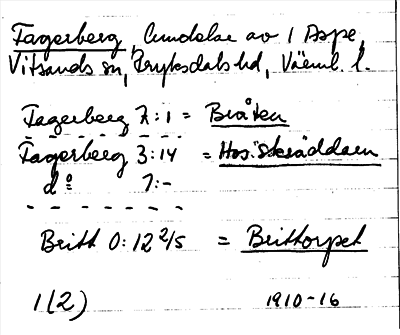 Fagerberg, lundelse av 1 Aspe,
Vitsands sn, Fryksdals hd, Värml. l.
Fagerberg 2:1 = Bråten
Fagerberg 3:14 = Hos:Skräddaren
d:o 7:-
Britt 0:12 2/5 = Brittorpet
1(2) 1910-16